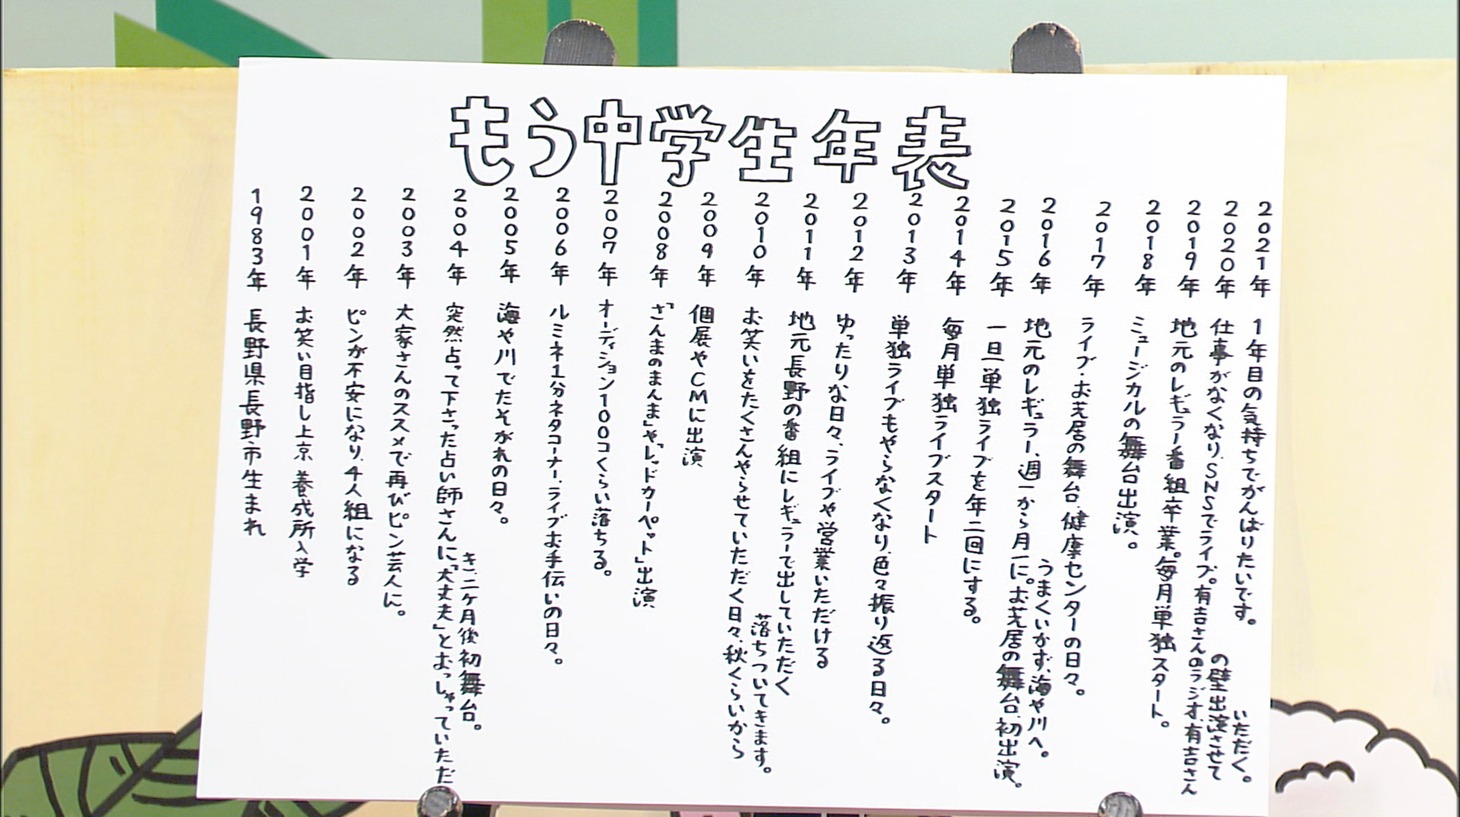 もう中学生年表
1983年 長野県長野市生まれ
2001年 お笑い目指し上京 養成所入学
2002年 ピンが不安になり、4人組になる
2003年 大家さんのススメで再びピン芸人に。
2004年 突然占って下さった占い師さんに「大丈夫」とおっしゃっていただ
き、二ヶ月後初舞台。
2005年 海や川でたそがれの日々。
2006年 ルミネ1分ネタコーナー、ライブお手伝いの日々。
2007年 オーディション100コくらい落ちる。
2008年 「さんまのまんま」や「レッドカーペット」出演
2009年 個展やCMに出演
2010年 お笑いをたくさんやらせていただく日々、秋くらいから
落ちついてきます。
2011年 地元長野の番組にレギュラーで出していただく
2012年 ゆったりな日々、ライブや営業いただける
2013年 単独ライブもやらなくなり、色々振り返る日々。
2014年 毎月単独ライブスタート
2015年 一旦単独ライブを年二回にする。
2016年 地元のレギュラー、週一から月一に。お芝居の舞台、初出演。
うまくいかず、海や川へ。
2017年 ライブ・お芝居の舞台、健康センターの日々。
2018年 ミュージカルの舞台出演。
2019年 地元のレギュラー番組卒業。毎月単独スタート。
2020年 仕事がなくなり、SNSでライブ。有吉さんのラジオ、有吉さん
の壁出演させて
いただく。
2021年 1年目の気持ちでがんばりたいです。